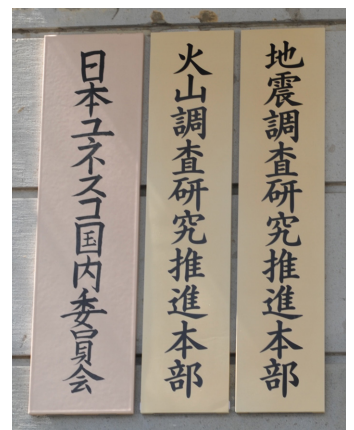 地震調査研究推進本部
火山調査研究推進本部
日本ユネスコ国内委員会